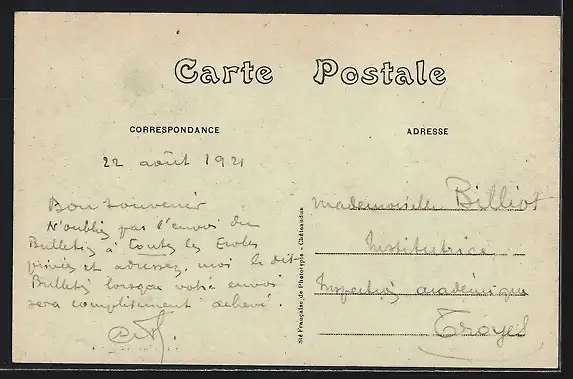 Carte Postale
CORRESPONDANCE
ADRESSE
22 août 1921
Bon souvenir
N'oubliez pas l'envoi du
Bulletin à toutes les Ecoles
privées et adressez moi le dit
Bulletin lorsque votre envoi
sera complètement achevé.
Mademoiselle Billiot
Institutrice
Inspection académique
Troyes
Sté Française de Phototypie - Châteaudun